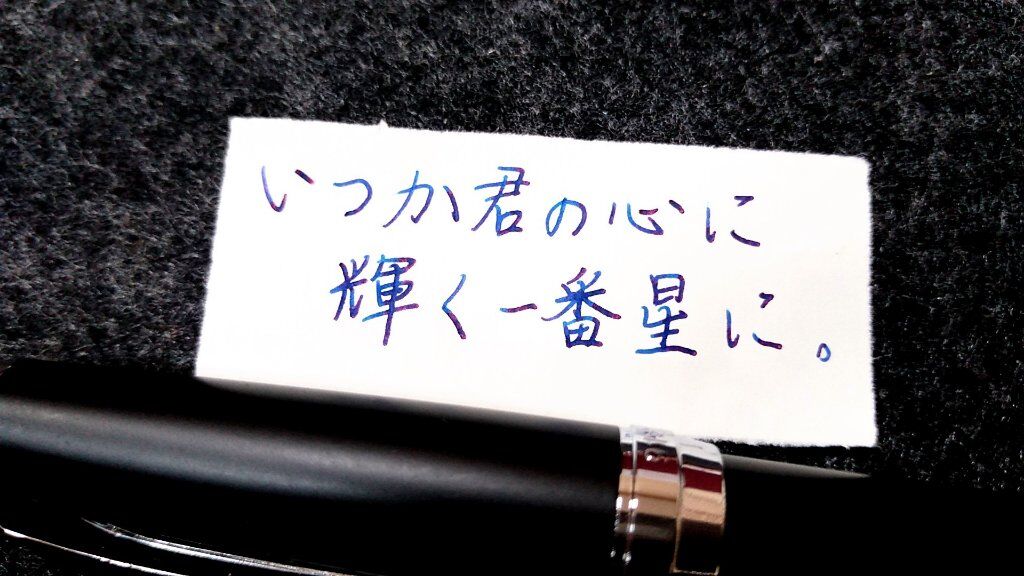 いつか君の心に
輝く一番星に。